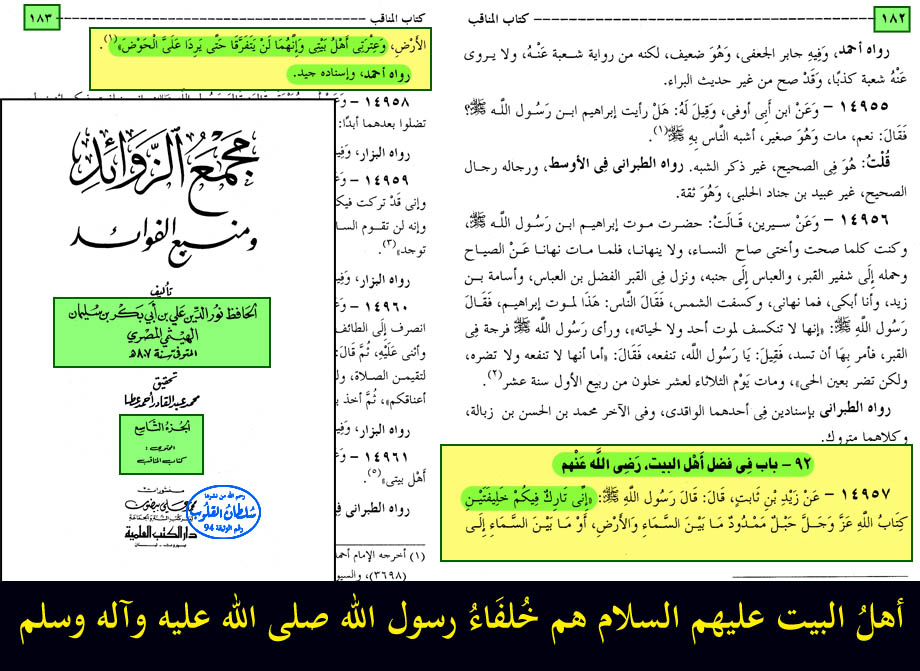 ١٨٢
كتاب المناقب
رواه أحمد، وَفِيهِ جابر الجعفى، وَهُوَ ضعيف، لكنه من رواية شعبة عَنْهُ، ولا يروى
عَنْهُ شعبة كذبًا، وَقَدْ صح من غير حديث البراء.
١٤٩٥٥ – وَعَنْ ابن أَبِى أوفى، وَقِيلَ لَهُ: هَلْ رأيت إبراهيم ابـن رَسُـول اللـه ﷺ؟
فَقَالَ: نعم، مات وَهُوَ صغير، أشبه النَّاس بِهِ ﷺ(١).
قُلْتُ: هُوَ فِى الصحيح، غير ذكر الشبه. رواه الطبرانى فِى الأوسط، ورجاله رجـال
الصحيح، غير عبيد بن جناد الحلبى، وَهُوَ ثقة.
١٤٩٥٦ – وَعَنْ سيرين، قَـالَتْ: حضـرت مـوت إبراهيـم ابـن رَسُـول اللَّـه ﷺ،
وكنت كلما صحت وأختى صاح النساء، ولا ينهانـا، فلمـا مـات نهانـا عَـنْ الصيـاح
وحمله إِلَى شفير القبر، والعباس إِلَى جنبه، ونزل فِى القبر الفضل بن العباس، وأسامة بـن
زيد، وأنا أبكى، فما نهانى، وكسفت الشمس، فَقَالَ النَّاس: هَذَا لموت إبراهيـم، فَقَـالَ
رَسُول اللَّه ﷺ: «إنها لا تنكسف لموت أحد ولا لحياته»، ورأى رَسُول اللَّه ﷺ فرجة فِى
القبر، فأمر بِهَا أن تسد، فَقِيلَ: يَا رَسُول الله، تنفعه، فَقَالَ: «أما أنها لا تنفعه ولا تضره،
ولكن تضر بعين الحى»، ومات يَوْم الثلاثاء لعشر خلون من ربيع الأول سنة عشر(٢).
رواه الطبرانى بإسنادين فِى أحدهما الواقدى، وفى الآخر محمد بن الحسن بن زبالة،
وكلاهما متروك.
٩٢ – باب فِى فضل أَهْل البيت، رَضِىَ اللَّه عَنْهم
١٤٩٥٧ – عَنْ زَيْدِ بْنِ ثَابتٍ، قَالَ: قَالَ رَسُولِ اللَّهِ ﷺ: «إِنِّى تَارِكٌ فِيكُمْ خلِيفَتَيْـنِ
كِتَابُ اللَّهِ عَزَّ وَجَلَّ حَبْلٌ مَمْدُودٌ مَا بَيْنَ السَّمَاءِ وَالأَرْضِ، أَوْ مَا بَيْنَ السَّمَاءِ إِلَى
كتاب المناقب
١٨٣
الأَرْضِ، وَعِتْرَتِى أَهْلُ بَيْتِى وَإِنَّهُمَا لَنْ يَتَفَرَّقَا حَتَّى يَردَا عَلَىَّ الْحَوْضَ»(١).
رواه أحمد، وإسناده جيد.
١٤٩٥٨
تضلوا بعدهما أبدًا:
رواه البزار، وَفِي
١٤٩٥٩ –
وإنى قَدْ تركت فيك
وإنه لن تقـوم السـا
توجد»(٣).
رواه البزار، وَفِي
١٤٩٦٠ –
انصرف إِلَى الطائف
وأثنى عَلَيْهِ، ثُمَّ قَالَ:
لتقيمـن الصـلاة، ولـ
أعناقكم»، ثُمَّ أخذ بـ
رواه البزار، وَفِي
١٤٩٦١ –
أَهْل بيتى»(٥).
رواه الطبرانى فِى
(١) أخرجه الإمام أحمد
(٣٦٩٨)، والسيو
مجمع الزوائد
ومنبع الفوائد
تأليف
الحافظ نور الدين علي بن أبي بكر بن سليمان
الهيثمي المصري
المتوفى سنة ٨٠٧ هـ
تحقيق
محمد عبد القادر أحمد عطا
الجزء التاسع
المحتوى:
كتاب المناقب
منشورات
محمد علي بيضون
دار الكتب العلمية
بيروت - لبنان
سلطان القلوب
رقم الوثيقة 94
أهلُ البيت عليهم السلام هم خُلفَاءُ رسول الله صلى الله عليه وآله وسلم